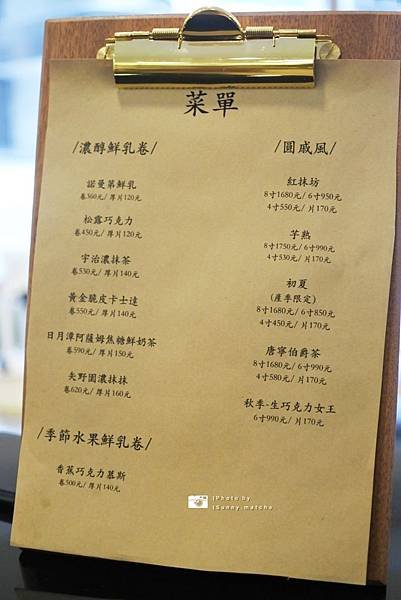 菜單
/濃醇鮮乳卷/
諾曼第鮮乳
卷360元/ 厚片120元
松露巧克力
卷450元/ 厚片120元
宇治濃抹茶
卷530元/ 厚片140元
黃金脆皮卡士達
卷550元/ 厚片140元
日月潭阿薩姆焦糖鮮奶茶
卷590元/ 厚片150元
矢野園濃抹抹
卷620元/ 厚片160元
/季節水果鮮乳卷/
香蕉巧克力慕斯
卷500元/ 厚片140元
/圓戚風/
紅抹坊
8寸1680元/ 6寸950元
4寸550元/ 片170元
芋熟
8寸1750元/ 6寸990元
4寸530元/ 片170元
初夏
(產季限定)
8寸1680元/ 6寸850元
4寸450元/ 片170元
唐寧伯爵茶
8寸1680元/ 6寸990元
4寸580元/ 片170元
秋季-生巧克力女王
6寸990元/ 片170元
|Photo by
|Sunny.matcha